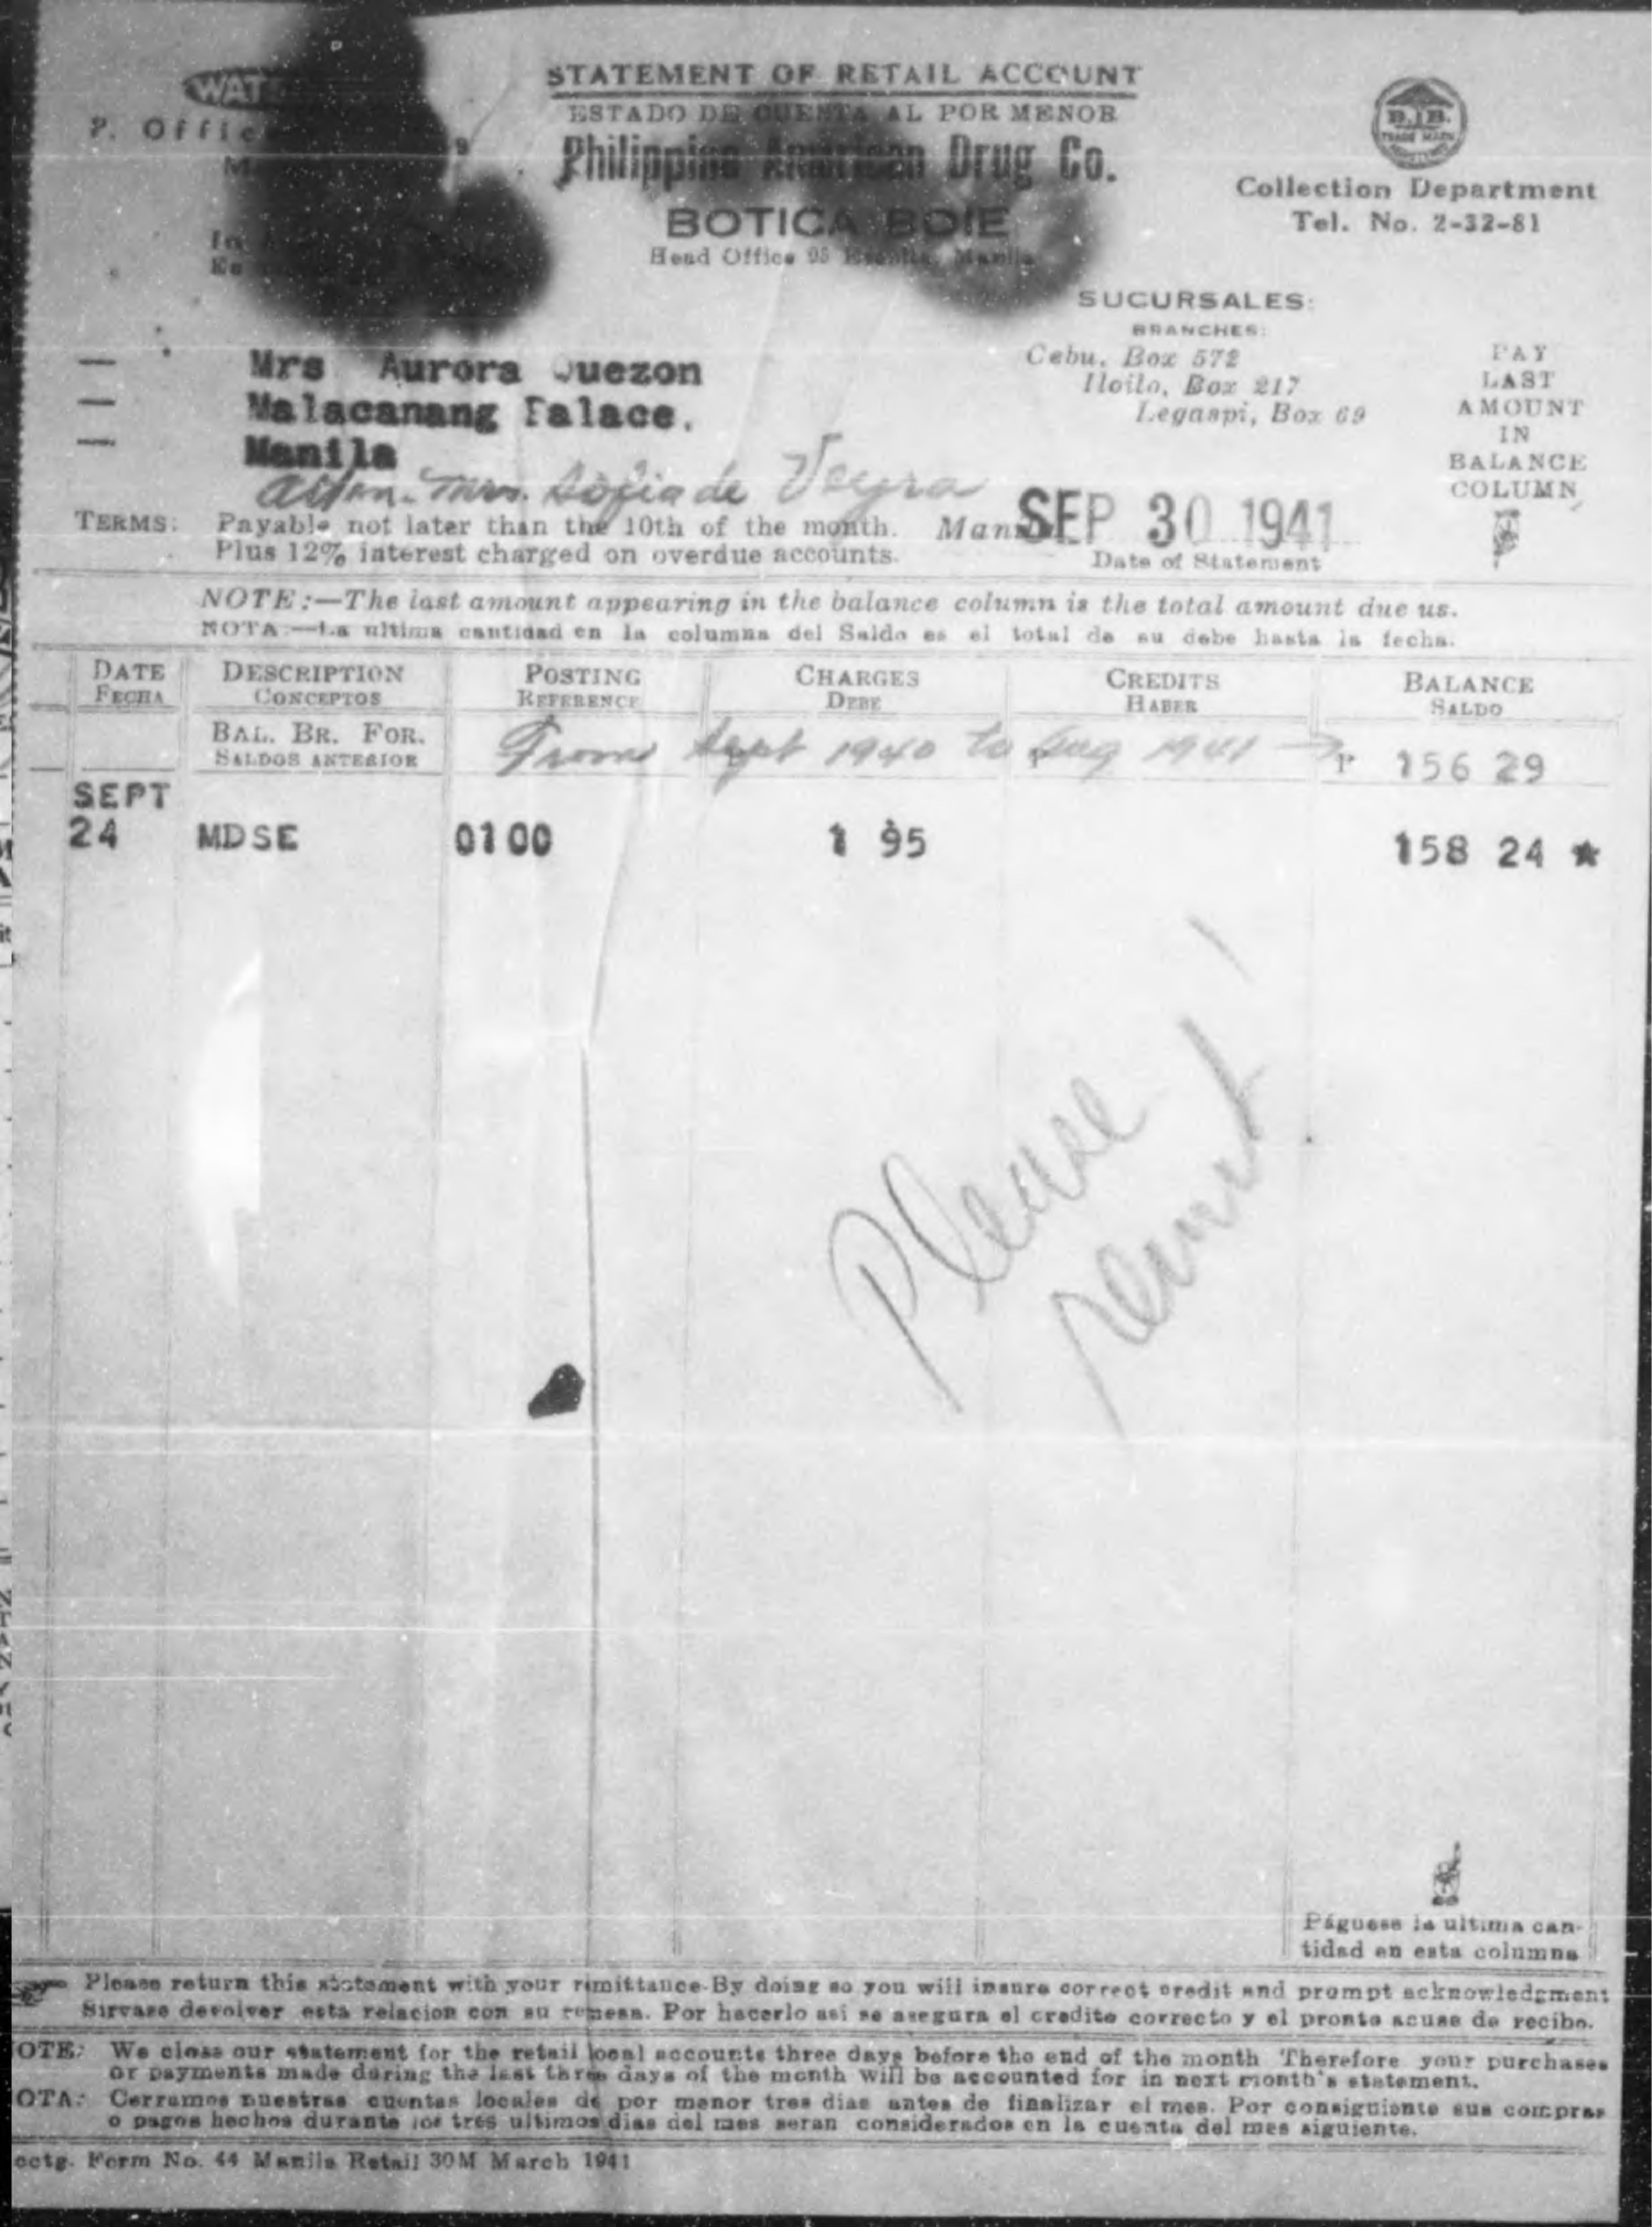 STATEMENT OF RETAIL ACCOUNT
ESTADO DE CUENTA AL POR MENOR
P. Office
Philippine American Drug Co.
BOTICA BOIE
Head Office 95 Escolta, Manila
B.I.B.
TRADE MARK
Collection Department
Tel. No. 2-32-81
SUCURSALES:
BRANCHES:
Cebu, Box 572
Iloilo, Box 217
Legaspi, Box 69
PAY
LAST
AMOUNT
IN
BALANCE
COLUMN
Mrs Aurora Quezon
Malacanang Palace,
Manila
Atten. Mrs. Sofia de Veyra
TERMS: Payable not later than the 10th of the month.
Plus 12% interest charged on overdue accounts.
SEP 30 1941
Date of Statement
NOTE:—The last amount appearing in the balance column is the total amount due us.
NOTA:—La ultima cantidad en la columna del Saldo es el total de su debe hasta la fecha.
DATE DESCRIPTION POSTING CHARGES CREDITS BALANCE
FECHA CONCEPTOS REFERENCE DEBE HABER SALDO
BAL. BR. FOR. From Sept 1940 to Aug 1941 → P 156 29
SALDOS ANTERIOR
SEPT
24 MDSE 0100 1 95 158 24 ★
Please
remit!
Páguese la ultima can-
tidad en esta columna
Please return this statement with your remittance-By doing so you will insure correct credit and prompt acknowledgment
Sirvase devolver esta relacion con su remesa. Por hacerlo asi se asegura el credito correcto y el pronto acuse de recibo.
OTE: We close our statement for the retail local accounts three days before the end of the month Therefore your purchases
or payments made during the last three days of the month will be accounted for in next month's statement.
OTA: Cerramos nuestras cuentas locales de por menor tres dias antes de finalizar el mes. Por consiguiente sus compras
o pagos hechos durante los tres ultimos dias del mes seran considerados en la cuenta del mes siguiente.
cctg. Form No. 44 Manila Retail 30M March 1941